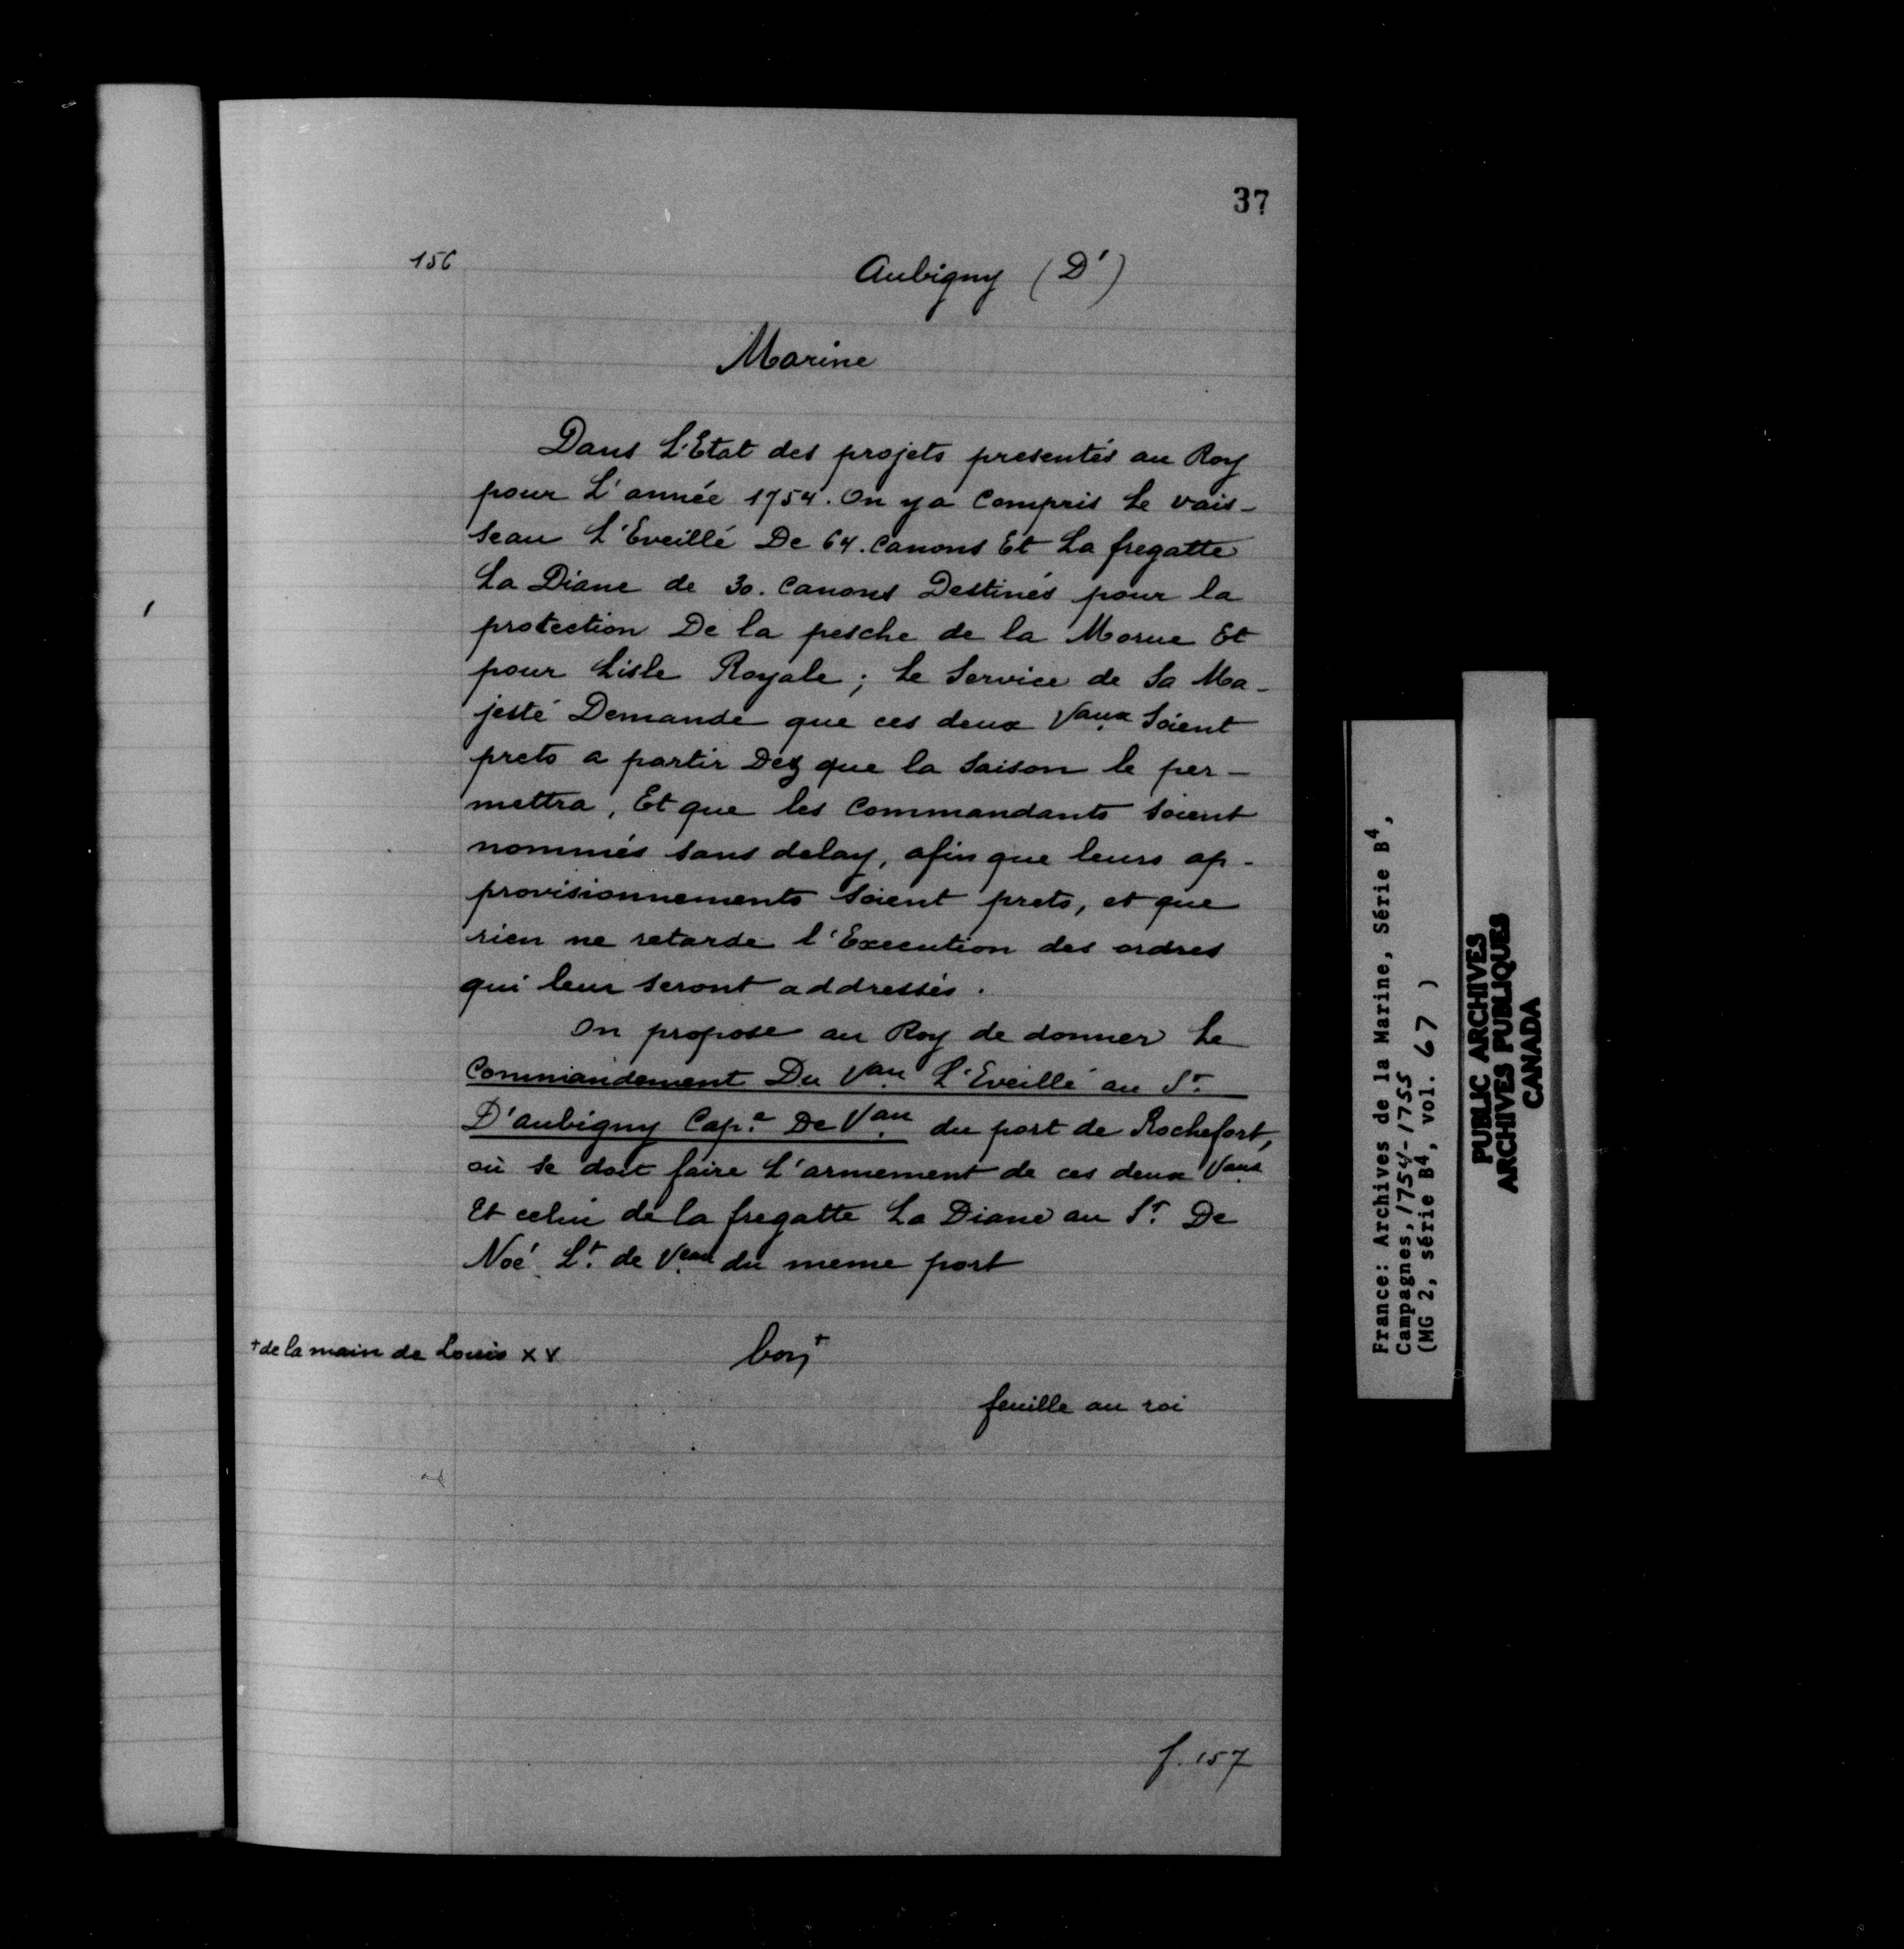 37
156
Aubigny (D')
Marine
Dans L'Etat des projets presentés au Roy
pour L'année 1754. On y a Compris Le vais-
seau L'Eveillé De 64. Canons Et La fregatte
La Diane de 30. Canons Destinés pour la
protection De la pesche de la Morue Et
pour Lisle Royale ; Le Service de Sa Ma-
jesté Demande que ces deux Vaux Soient
prets a partir Dez que la Saison le per-
mettra, Et que les Commandants Soient
nommés Sans delay, afin que leurs ap-
provisionnements Soient prets, et que
rien ne retarde l'Execution des ordres
qui leur Seront addressés.
On propose au Roy de donner Le
Commandement Du Vau L'Eveillé au Sr.
D'aubigny Cap.e De Vau du port de Rochefort,
où Se doit faire L'armement de ces deux Vaux
Et celui de la fregatte La Diane au Sr. De
Noé Lt. de Veau du meme port
+ de la main de Louis XV
bon +
feuille au roi
f. 157
France: Archives de la Marine, Série B4,
Campagnes, 1754-1755
(MG 2, série B4, vol. 67 )
PUBLIC ARCHIVES
ARCHIVES PUBLIQUES
CANADA